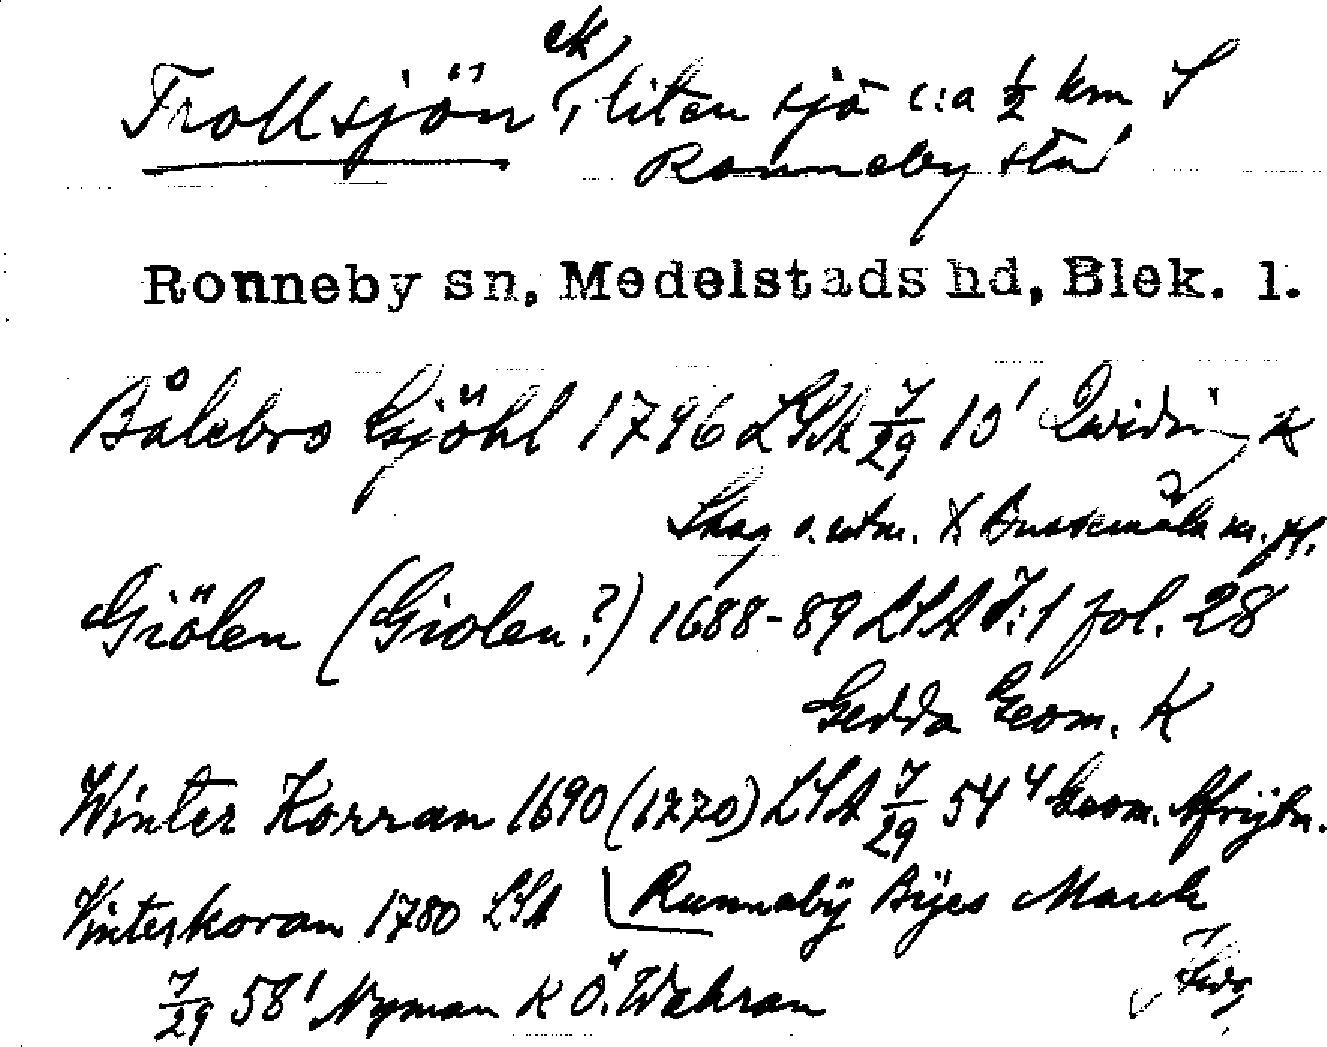 Trollsjön ek, liten sjö c:a ½ km S
Ronneby stad
Ronneby sn, Medelstads hd, Blek. l.
Bålebro Kjöhl 1796 LSA 7/29 10' Qviding K
Skog o. utm. X Bustemåla m. fl.
Giölen (Giolen?) 1688-89 LSA I:1 fol. 28
Gedda Geom. K
Winter Korran 1690 (1770) LSA 7/29 54 4 Geom. Afrijtn.
Vinterkoran 1780 LSA Runnebÿ Bÿes Mark
7/29 58' Nyman K Ö. Wahran